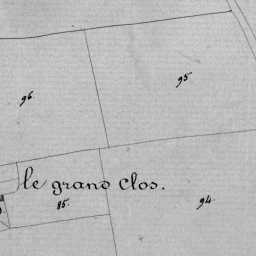 95.
96.
le grand clos.
85.
94.